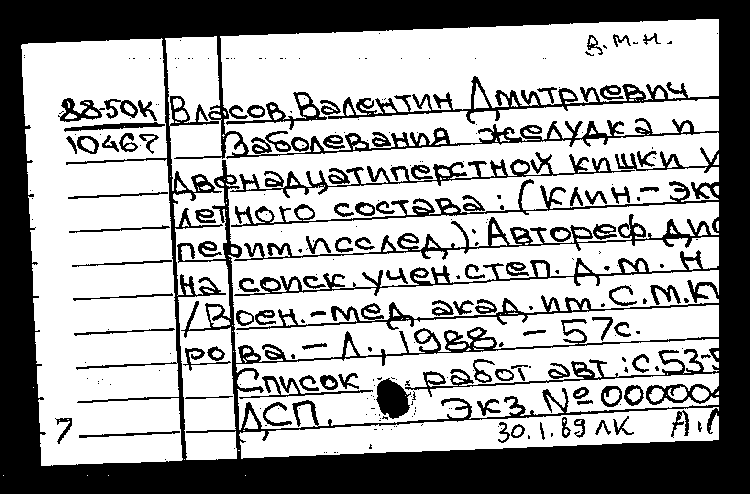 д.м.н.
88-50К Власов, Валентин Дмитриевич
10467 Заболевания желудка и
двенадцатиперстной кишки у
летного состава: (Клин.-экс
перим. исслед.): Автореф. дис
на соиск. учен. степ. д.м.н
/Воен.-мед. акад. им. С.М.Ки
рова. – Л., 1988. – 57с.
Список работ авт.: с.53-5
ДСП. Экз. № 000004
30.1.89 ЛК А.Л
7